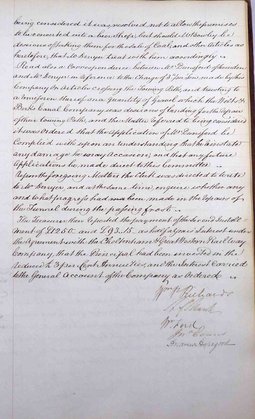 being considered it was resolved, not to allow the premises
to be converted into a beer Shop, but should Mr. Bowly be
desirous of taking them for the sale of Coal, and other articles as
heretofore, that Mr. Denyer treat with him accordingly.
Read also a correspondence between Mr. Lansford of Brimscombe
and Mr. Denyer in reference to the Charge of 2/. per Ton made by this
Company on Articles crossing the Towing Path, and tending to
a transfer thereof on a quantity of gravel which the Wilts &
Berks Canal Company was desirous of landing for the repairs
of their Towing Path, and the Matter referred to being considered
it was Ordered that the application of Mr. Lansford be
Complied with upon an understanding that he make
any damage he may occasion, and that any future
application be made direct to this Committee.
Upon the foregoing Matters the Clerk was directed to write
to Mr. Denyer and at the same time enquire whether any
and what progress had been made in the repairs of
the Tunnel during the passing frost.
The Treasurer then reported the payment of the Seventh Instal-
ment of £1250. and £93.15. as half a years Interest under
the agreement with the Cheltenham & Great Western Railway
Company, that the Principal had been invested in the
Reduced 3 per Cent Annuities, and the Interest Carried
to the General Account of the Company as Ordered
Wm. P. Richards
Wm. Ford